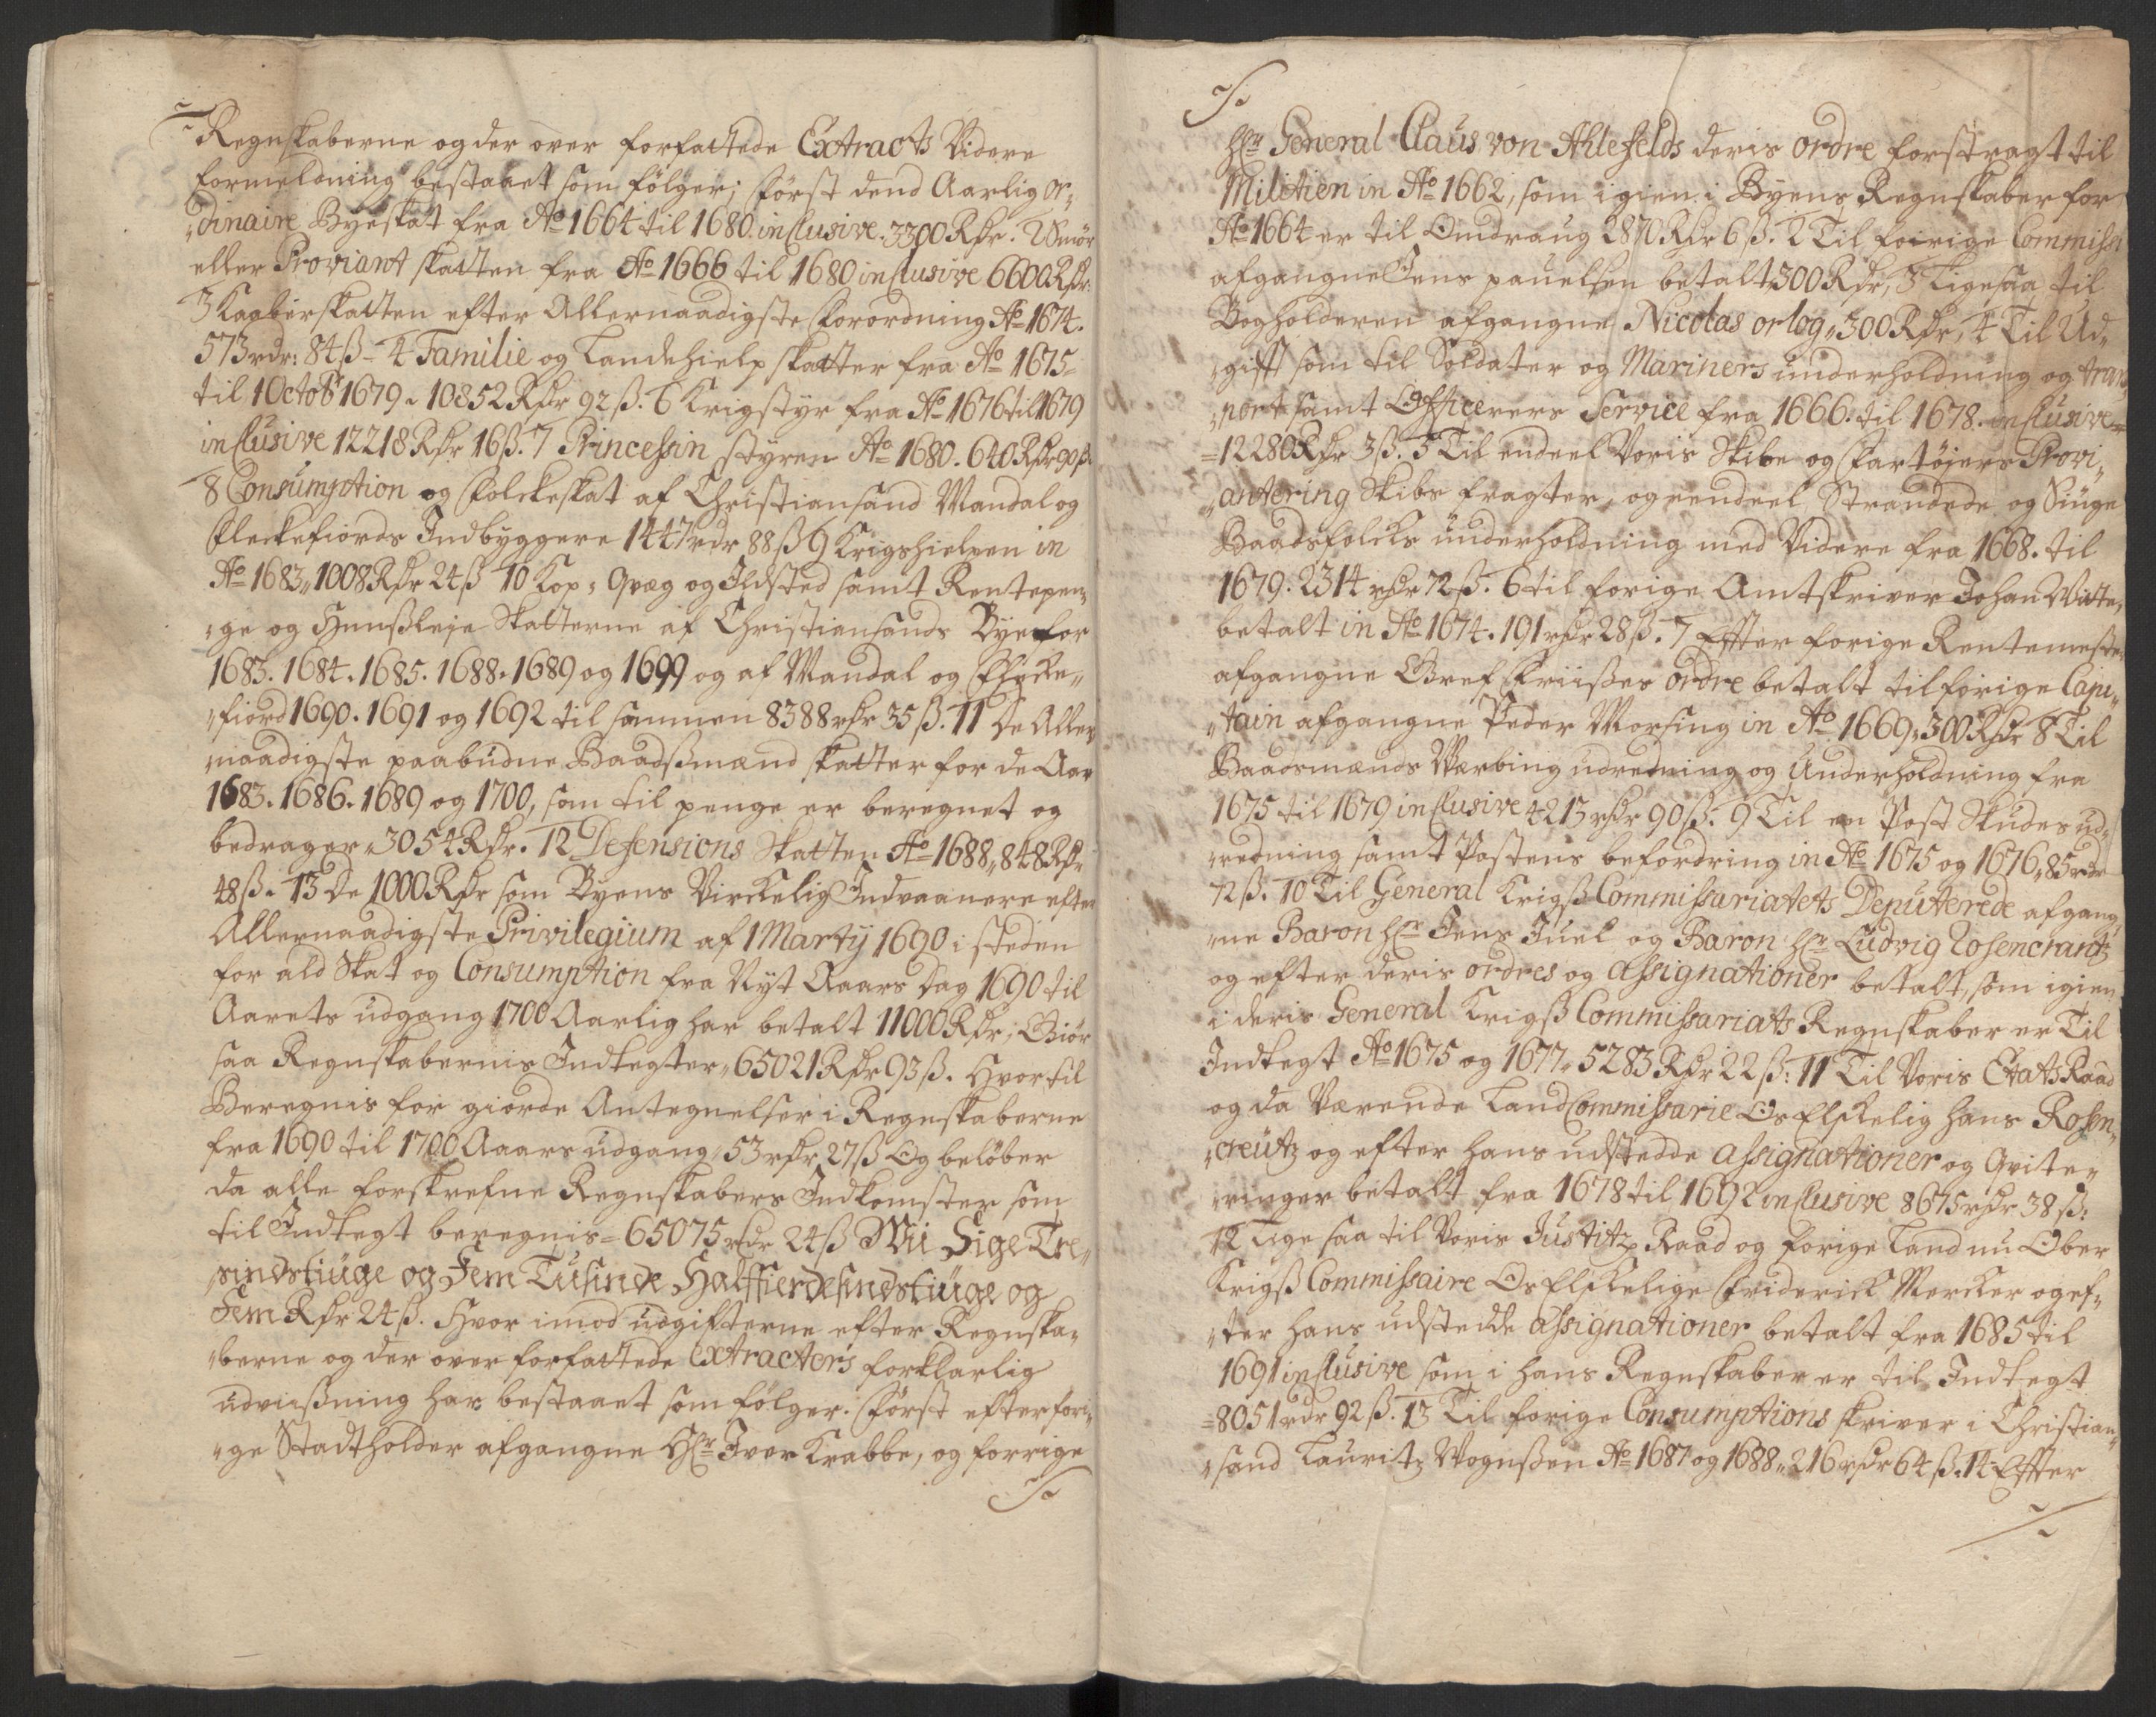 Regnskaberne og der over forfattede Extracts Videre
formeldning bestaaet som følger; Først dend Aarlig or„
„dinaire Byeskat fra Aº 1664 til 1680 inclusive. 3300 Rdr. 2 Smør
eller Proviant skatten fra Aº 1666 til 1680 inclusive 6600 Rdr:
3 Kaaberskatten efter Allernaadigste Forordning Aº 1674.
573 rdr: 84 ß - 4 Familie og Landehielp skatter fra Aº 1675
til 1 Octobr 1679 „ 10852 Rdr 92 ß. 6 Krigstyr fra Aº 1676 til 1679
inclusive 12218 Rdr 16 ß. 7 Princessin styren Aº 1680. 640 Rdr 90 ß.
8 Consumption og Folckeskat af Christiansand Mandal og
Fleckefiords Indbyggere 1447 rdr 88 ß 9 Krigshielpen in
Aº 1683 „ 1008 Rdr 24 ß 10 Kop: Qvæg og Ildsted samt Rentepen„
„ge og Huußleje Skatterne af Christiansands Bye for
1683. 1684. 1685. 1688. 1689 og 1699 og af Mandal og Flecke„
„fiord 1690. 1691 og 1692 til sammen 8388 rdr 35 ß. 11 De Aller
„naadigste paabudne Baadßmænd skatter for de Aar
1683. 1686. 1689 og 1700, som til penge er beregnet og
bedrager „ 3054 Rdr. 12 Defensions Skatten Aº 1688 „ 848 Rdr
48 ß. 13 De 1000 Rdr som Byens Virckelig Indvaanere efter
Allernaadigste Privilegium af 1 Martij 1690 i steden
for ald Skat og Consumption fra Nyt Aaars Dag 1690 til
Aarets udgang 1700 Aarlig har betalt 11000 Rdr; Giør
saa Regnskabernis Indtegter „ 65021 Rdr 93 ß. Hvortil
Beregnis for giorde Antegnelser i Regnskaberne
fra 1690 til 1700 Aaars udgang „ 53 rdr 27 ß Og beløber
da alle forskrefne Regnskabers Indkomster som
til Indtegt beregnis = 65075 rdr 24 ß Wii Sige Tre„
„sindstiuge og Fem Tusinde Halffierdesindstiuge og
Fem Rdr 24 ß. Hvor imod udgifterne efter Regnska„
„berne og der over forfattede Extracters forklarlig
udviißning har bestaaet som følger. Først efter fori„
„ge Stadtholder afgangne Hr Iver Krabbe, og forrige
Hr General Claus von Ahlefelds deris ordre forstragt til
Militien in Aº 1662, som igien i Byens Regnskaber for
Aº 1664 er til Omdraug 2870 Rdr 6 ß. 2 Til foirige Commiss
afgangne Jens pauelsen betalt 300 Rdr, 3 Ligesaa til
Bogholderen afgangne Nicolas orlog „ 300 Rdr, 4 Til Ud„
„gift som til Soldater og Mariners underholdning og tran„
„port samt Officerers Service fra 1666. til 1678. inclusive
= 12280 Rdr 3 ß. 5 Til endeel Voris Skibe og Fartøjers Provi„
„antering Skibs fragter, og eendeel Strandede og Siuge
Baadsfolcks underholdning med Videre fra 1668. til
1679. 2314 rdr 72 ß. 6 til forige Amtskriver Johan Witte,
betalt in Aº 1674. 191 rdr 28 ß. 7 Effter forige Rentemester
afgangne Gref Friißes ordre betalt til forige Capi„
„tain afgangne Peder Morsing in Aº 1669 „ 300 Rdr 8 Til
Baadsmænds Værbing udredning og Underholdning fra
1675 til 1679 inclusive 4213 rdr 90 ß. 9 Til en Post Skudes ud„
„redning samt Postens befordring in Aº 1675 og 1676 „ 85 rdr
72 ß. 10 Til General Krigß Commissariatets Deputerede afgang„
„ne Baron Hr Jens Juel og Baron Hr Ludvig Rosencrantz
og efter deris ordres og assignationer betalt, som igien
i deris General Krigß Commissariats Regnskaber er Til
Indtegt Aº 1675 og 1677 „ 5283 Rdr 22 ß: 11 Til Voris Etats Raad
og da Værende Land Commissarie Os Elskelig Hans Rosen„
„creutz og efter hans udstedde assignationer og Qvite„
„ringer betalt fra 1678 til 1692 inclusive 8675 rdr 38 ß:
12 Lige saa til Voris Justitz Raad og forige Land nu Ober
Krigß Commissaire Os Elskelige Friderick Mercker og ef„
„ter hans udstedde assignationer betalt fra 1685 til
1691 inclusive som i hans Regnskaber er til Indtegt
= 8051 rdr 92 ß. 13 Til forige Consumptions skriver i Christian„
„sand Lauritz Mognßen Aº 1687 og 1688 „ 216 rdr 64 ß. 14 Effter